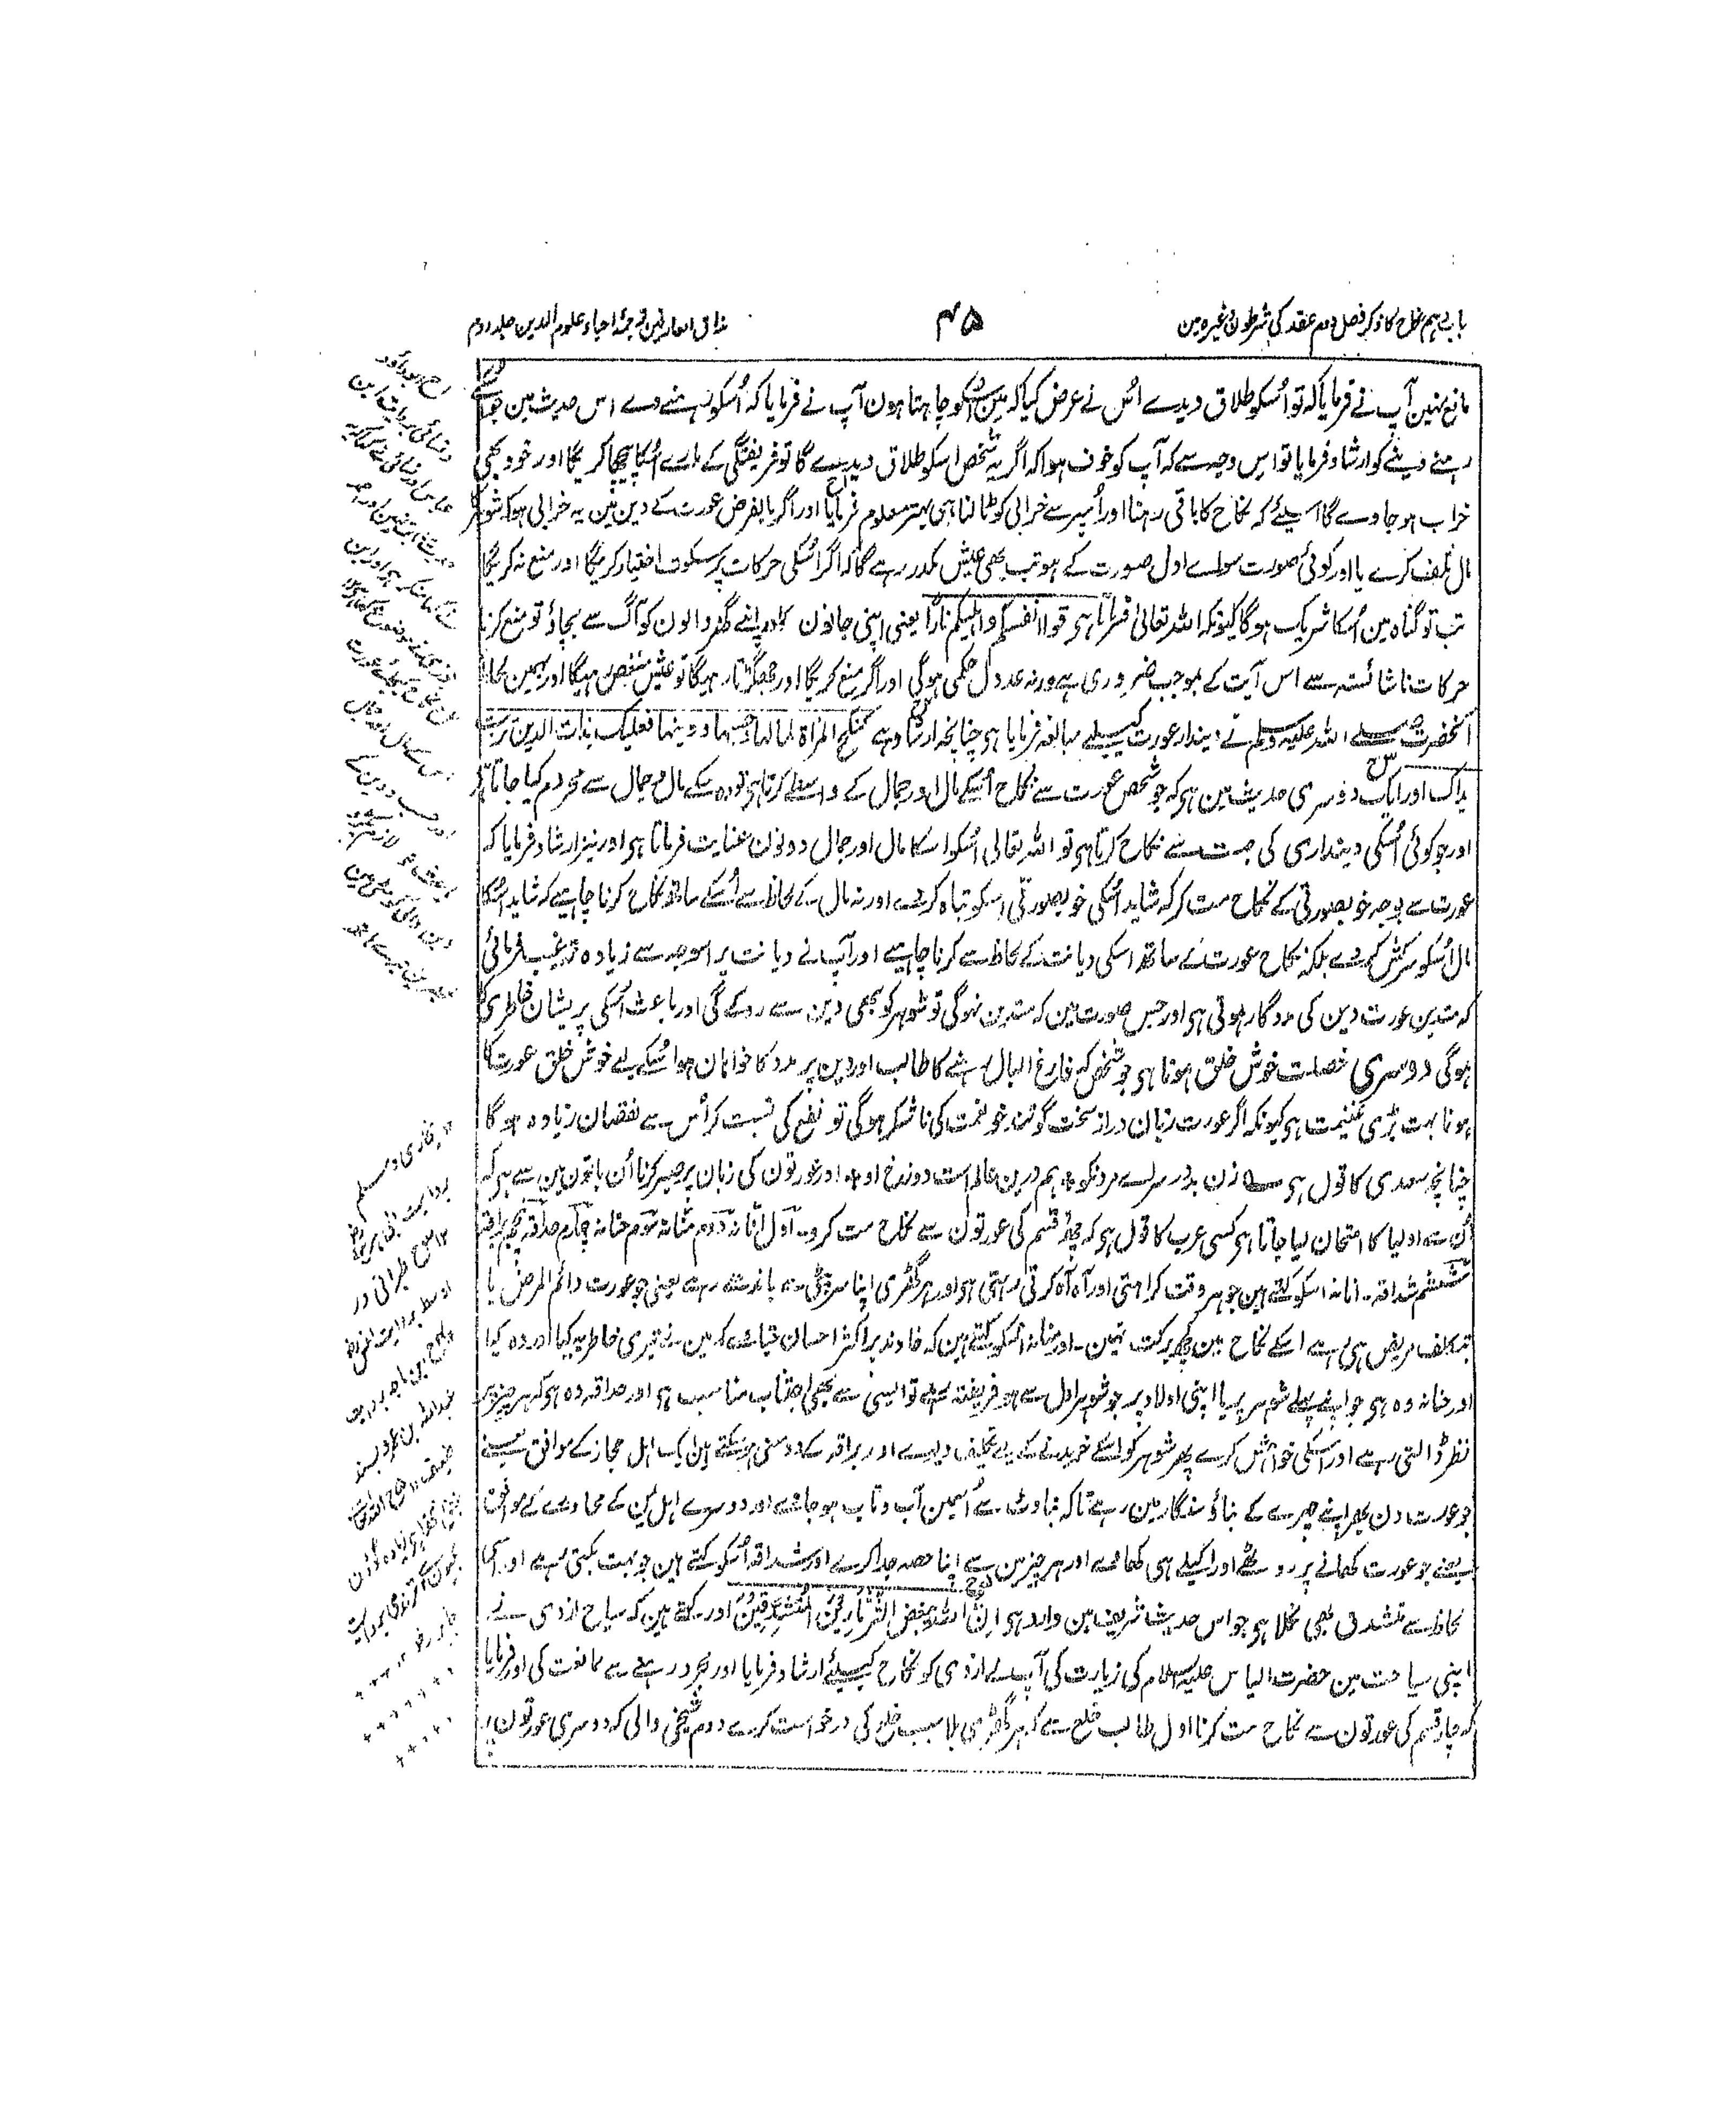 باب دہم نکاح کا ذکر فصل دوم عقد کی شرطون وغیرہ مین
۴۵
مذاق العارفین ترجمۂ احیاء علوم الدین جلد دوم
مانع نہین آپ نے فرمایا کہ تو اُسکو طلاق دیدے اُس نے عرض کیا کہ مین اُسکو چاہتا ہون آپ نے فرمایا کہ اُسکو رہنے دے اس حدیث مین جو آپنے
رہنے دینے کو ارشاد فرمایا تو اس وجہ سے کہ آپ کو خوف ہوا کہ اگر یہ شخص اسکو طلاق دیدے گا تو فریفتگی کے مارے اُسکا پیچھا کریگا اور خود بھی
خراب ہو جاوے گا اسلیئے کہ نکاح کا باقی رہنا اور اُسپر سے خرابی کو ٹالنا ہی بہتر معلوم فرمایا اور اگر بالفرض عورت کے دین مین یہ خرابی ہو کہ شوہر کا
مال تلف کرے یا اور کوئی صورت سواے اول صورت کے ہو تب بھی عیش مکدر رہے گا کہ اگر اُسکی حرکات پر سکوت اختیار کریگا اور منع نہ کریگا
تب تو گناہ مین اُسکا شریک ہوگا کیونکہ اللہ تعالیٰ فرماتا ہے قوا انفسکم واہلیکم نارًا یعنی اپنی جانون کو اور اپنے گھر والون کو آگ سے بچاؤ تو منع کرنا
حرکات ناشائستہ سے اس آیت کے بموجب ضروری ہے ورنہ عدول حکمی ہوگی اور اگر منع کریگا اور جھگڑتا رہیگا تو عیش منغص رہیگا اور ہمین لحاظ
آنحضرت صلے اللہ علیہ وسلم نے دیندار عورت کیلیے مبالغہ فرمایا ہے چنانچہ ارشاد ہے تنکح المرأۃ لمالہا وحسبہا ودینہا فعلیک بذات الدین تربت
یداک اور ایک دوسری حدیث مین ہے کہ جو شخص عورت سے نکاح اُسکے مال اور جمال کے واسطے کرتا ہے تو وہ اُسکے مال و جمال سے محروم کیا جاتا ہے
اور جو کوئی اُسکی دینداری کی جہت سے نکاح کرتا ہے تو اللہ تعالی اُسکو اسکا مال اور جمال دونون عنایت فرماتا ہے اور نیز ارشاد فرمایا کہ
عورت سے بوجہ خوبصورتی کے نکاح مت کر کہ شاید اُسکی خوبصورتی اسکو تباہ کردے اور نہ مال کے لحاظ سے اُسکے ساتھ نکاح کرنا چاہیے کہ شاید اُسکا
مال اُسکو سرکش کردے بلکہ نکاح عورت کے ساتھ اسکی دیانت کے لحاظ سے کرنا چاہیے اور آپ نے دیانت پر اسوجہ سے زیادہ ترغیب فرمائی
کہ متدین عورت دین کی مددگار ہوتی ہے اور جس صورت مین کہ متدین نہوگی تو شوہر کو بھی دین سے روکے گی اور باعث اُسکی پریشان خاطری کا
ہوگی دوسری خصلت خوش خلق ہونا ہے جو شخص کہ فارغ البال رہنے کا طالب اور دین پر مدد کا خواہان ہو اُسکے لیے خوش خلق عورت کا
ہونا بہت بڑی غنیمت ہے کیونکہ اگر عورت زبان دراز سخت گو تند خو نعمت کی ناشکر ہوگی تو نفع کی نسبت کر اُس سے نقصان زیادہ ہوگا
چنانچہ سعدی کا قول ہے زن بد در سراے مرد نکو ٭ ہم درین عالم است دوزخ او ٭ اور عورتون کی زبان پر صبر کرنا اُن باتون مین سے ہے کہ
اُن سے اولیا کا امتحان لیا جاتا ہے کسی عرب کا قول ہے کہ چھ قسم کی عورتون سے نکاح مت کرو۔ اول انانہ دوم منانہ سوم حنانہ چہارم حداقہ پنجم براقہ
ششم شداقہ۔ انانہ اسکو کہتے ہین جو ہر وقت کراہتی اور آہ آہ کرتی رہتی ہے اور ہر گھڑی اپنا سر پٹی سے باندھے رہے یعنی جو عورت دائم المرض یا
بتکلف مریض بنی رہے اسکے نکاح مین کچھ برکت نہین۔ اور منانہ اُسکو کہتے ہین کہ خاوند پر اکثر احسان جتاے کہ مین نے تیری خاطر یہ کیا اور وہ کیا
اور حنانہ وہ ہے جو اپنے پہلے شوہر پر یا اپنی اولاد پر جو شوہر اول سے ہو فریفتہ رہے تو ایسی سے بھی اجتناب مناسب ہے اور حداقہ وہ ہے کہ ہر چیز پر
نظر ڈالتی رہے اور اسکی خواہش کرے پھر شوہر کو اسکے خریدنے کے لیے تکلیف دیوے اور براقہ کے دو معنی ہوسکتے ہین ایک اہل حجاز کے موافق یعنے
جو عورت دن بھر اپنے چہرے کے بناؤ سنگار مین رہے تاکہ بناوٹ سے اُسمین آب و تاب ہو جاے اور دوسرے اہل یمن کے محاورے کے موافق
یعنے جو عورت کھانے پر روٹھے اور اکیلے ہی کھاے اور ہر چیز مین سے اپنا حصہ جدا کرے اور شداقہ اُسکو کہتے ہین جو بہت بکتی رہے اور اسی
لحاظ سے متشدق بھی نکلا ہے جو اس حدیث شریف مین وارد ہے ان اللہ یبغض الثرثارین المتشدقین اور کہتے ہین کہ سیاح ازدی نے
اپنی سیاحت مین حضرت الیاس علیہ السلام کی زیارت کی آپ نے ازدی کو نکاح کیلیئے ارشاد فرمایا اور مجرد رہنے سے ممانعت کی اور فرمایا
کہ چار قسم کی عورتون سے نکاح مت کرنا اول طالب خلع سے کہ ہر گھڑی بلا سبب خلع کی درخواست کرے دوم شیخی والی کہ دوسری عورتون پر
بخاری ومسلم
بروایت ابی ہریرہ
طبرانی در
اوسط بروایت انس
ابن ماجہ بروایت
عبداللہ بن عمرو بسند
ضعیف
ترمذی بروایت
جابر رض